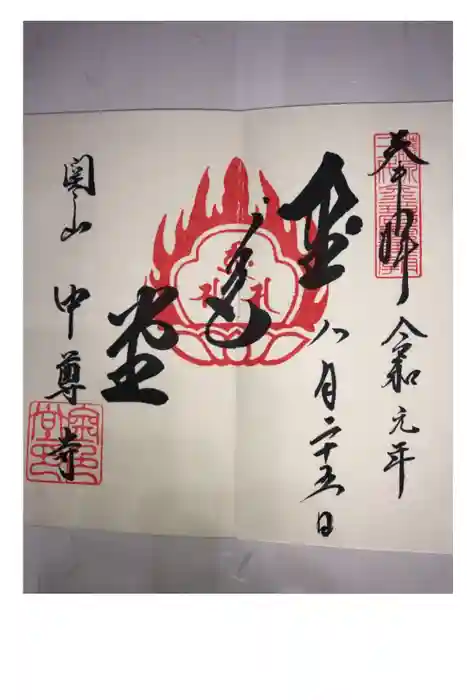 奉拝
令和元年
八月二十五日
金色堂
関山
中尊寺
金色堂印